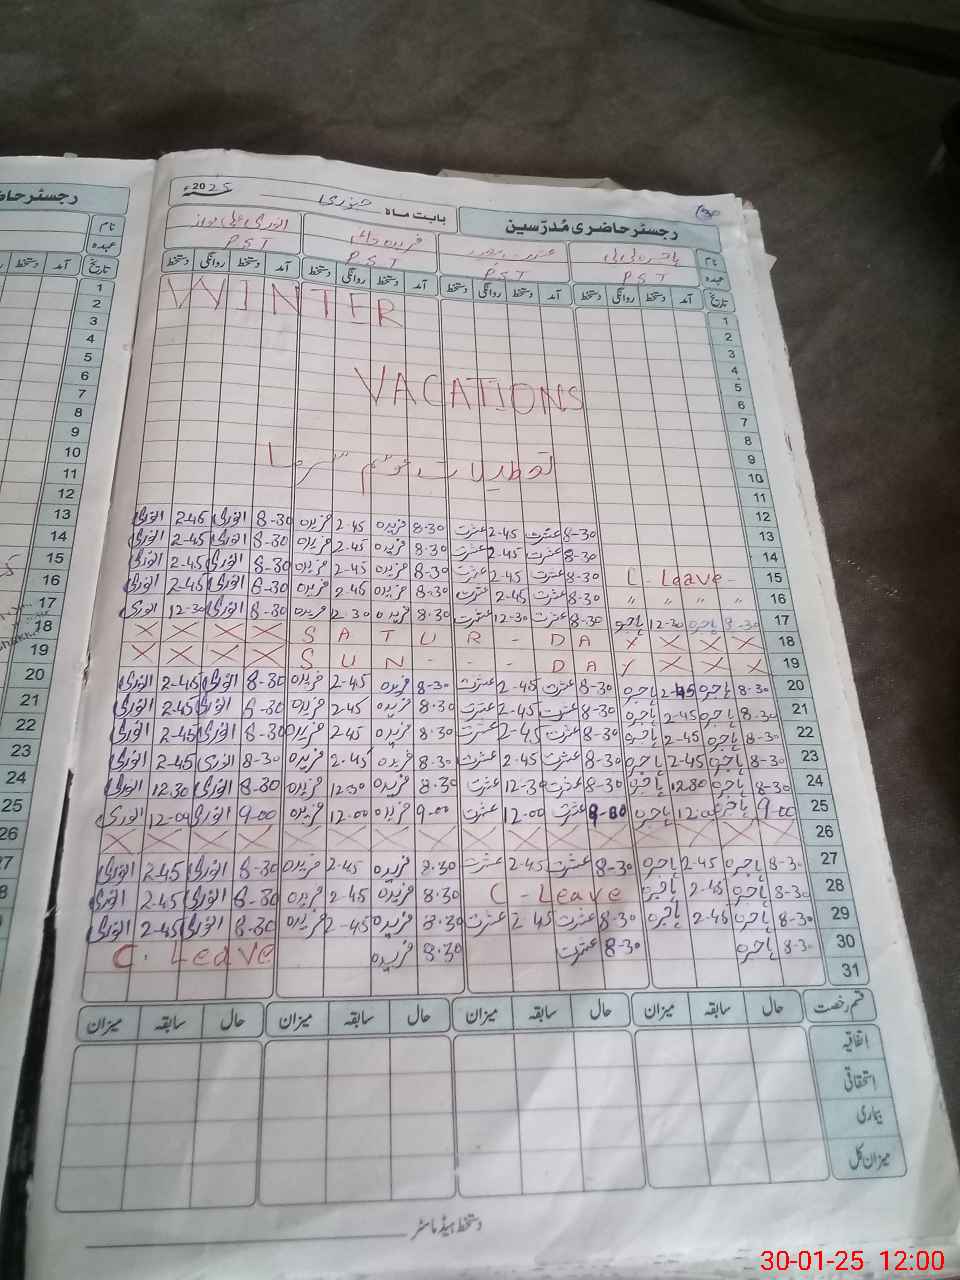 رجسٹر حاضری مُدرّسین بابت ماہ جنوری 2025ء
نام
عہدہ PST PST PST PST
تاریخ آمد دستخط روانگی دستخط آمد دستخط روانگی دستخط آمد دستخط روانگی دستخط آمد دستخط روانگی دستخط
1 WINTER
2
3
4
5 VACATIONS
6
7
8
9 تعطیلات موسم سرما
10
11
12
13 8-30 عشرت 2-45 عشرت 8-30 فریدہ 2-45 فریدہ 8-30 انوری 2-45 انوری
14 8-30 عشرت 2-45 عشرت 8-30 فریدہ 2-45 فریدہ 8-30 انوری 2-45 انوری
15 C - Leave - 8-30 عشرت 2-45 عشرت 8-30 فریدہ 2-45 فریدہ 8-30 انوری 2-45 انوری
16 " " " " 8-30 عشرت 2-45 عشرت 8-30 فریدہ 2-45 فریدہ 8-30 انوری 2-45 انوری
17 8-30 ہاجرہ 12-30 ہاجرہ 8-30 عشرت 12-30 عشرت 8-30 فریدہ 12-30 فریدہ 8-30 انوری 12-30 انوری
18 X X X X S A T U R - D A Y X X X
19 X X X X S U N - - - D A Y X X X
20 8-30 ہاجرہ 2-45 ہاجرہ 8-30 عشرت 2-45 عشرت 8-30 فریدہ 2-45 فریدہ 8-30 انوری 2-45 انوری
21 8-30 ہاجرہ 2-45 ہاجرہ 8-30 عشرت 2-45 عشرت 8-30 فریدہ 2-45 فریدہ 8-30 انوری 2-45 انوری
22 8-30 ہاجرہ 2-45 ہاجرہ 8-30 عشرت 2-45 عشرت 8-30 فریدہ 2-45 فریدہ 8-30 انوری 2-45 انوری
23 8-30 ہاجرہ 2-45 ہاجرہ 8-30 عشرت 2-45 عشرت 8-30 فریدہ 2-45 فریدہ 8-30 انوری 2-45 انوری
24 8-30 ہاجرہ 12-30 ہاجرہ 8-30 عشرت 12-30 عشرت 8-30 فریدہ 12-30 فریدہ 8-30 انوری 12-30 انوری
25 9-00 ہاجرہ 12-00 ہاجرہ عشرت 12-00 عشرت 9-00 فریدہ 12-00 فریدہ 9-00 انوری 12-00 انوری
26 X X X X X X X X X X X X X X X X
27 8-30 ہاجرہ 2-45 ہاجرہ 8-30 عشرت 2-45 عشرت 8-30 فریدہ 2-45 فریدہ 8-30 انوری 2-45 انوری
28 8-30 ہاجرہ 2-45 ہاجرہ C - Leave 8-30 فریدہ 2-45 فریدہ 8-30 انوری 2-45 انوری
29 8-30 ہاجرہ 2-45 ہاجرہ 8-30 عشرت 2-45 عشرت 8-30 فریدہ 2-45 فریدہ 8-30 انوری 2-45 انوری
30 8-30 ہاجرہ 8-30 عشرت 8-30 فریدہ C. Leave
31
قسم رخصت حال سابقہ میزان حال سابقہ میزان حال سابقہ میزان حال سابقہ میزان
اتفاقیہ
استحقاقی
بیماری
میزان کل
دستخط ہیڈ ماسٹر
30-01-25 12:00